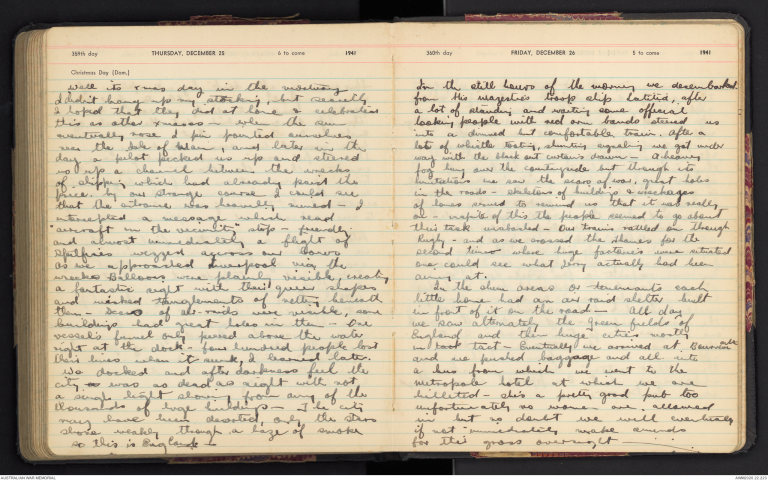 359th day THURSDAY, DECEMBER 25 6 to come 1941
Christmas Day (Dom.)
Well its xmas day in the
I didn't hang up my stocking, but secretly
I hoped that they did at home & celebrated
this as other xmases - when the sun
eventually rose I pin pointed ourselves
near the Isle of Man, and later in the
day a pilot picked us up and steered
us up a channel between the wrecks
of shipping which had already paid the
price, by our steady course I could see
that the entrance was heavily mined - I
intercepted a message which read
"aircraft in the vicinity" stop - friendly.
and almost immediately a flight of
Spitfires wizzed across our bows
as we approached Liverpool via the
wrecks Balloons were plainly visible, creating
a fantastic sight with their queer shapes
and wicked entanglements of netting beneath
them - Scars of air-raids were visible, some
buildings had great holes in them - One
vessel's funnel only peered above the water
right at the dock - four hundred people lost
their lives when it sunk, I learned later.
We docked and after darkness fell the
city was so dead as night with not
a single light shown from any of the
thousands of huge buildings - The city
may have been deserted, only the stars
shone weakly through a haze of smoke
so this is England -
360th day FRIDAY, DECEMBER 26 5 to come 1941
In the still hours of the morning we disembarked
from His Majestie's troop ship Letitia, after
a lot of standing and waiting some official
looking people with red arm bands steered us
into a dimmed but comfortable train, after a
lots of whistle tooting, shunting signaling we got under
way with the black out curtains drawn - A heavy
fog hung over the countryside but though its
limitations we saw the scars of war, great holes
in the roads - skeletons of buildings & wreckages
of homes served to remind us that it was really
on - inspite of this the people seemed to go about
their task unabashed - Our train rattled on through
Rugby - and as we crossed the Thames for the
second time where huge factories were situated
one could see what Jerry actually had been
aiming at.
In the slum areas or tenements each
little home had an air raid shelter built
in front of it on the road - All day
we saw alternately the green fields of
England and the huge cities most
in fact that - Eventually we arrived at Bournemouth
and we pushed baggage and all into
a bus from which we went to the
metropole hotel at which we are
billetted - she's a pretty good pub too
unfortunately no women are allowed
in but no doubt we will eventually
if not immediately make amends
for this gross oversight -
AUSTRALIAN WAR MEMORIAL